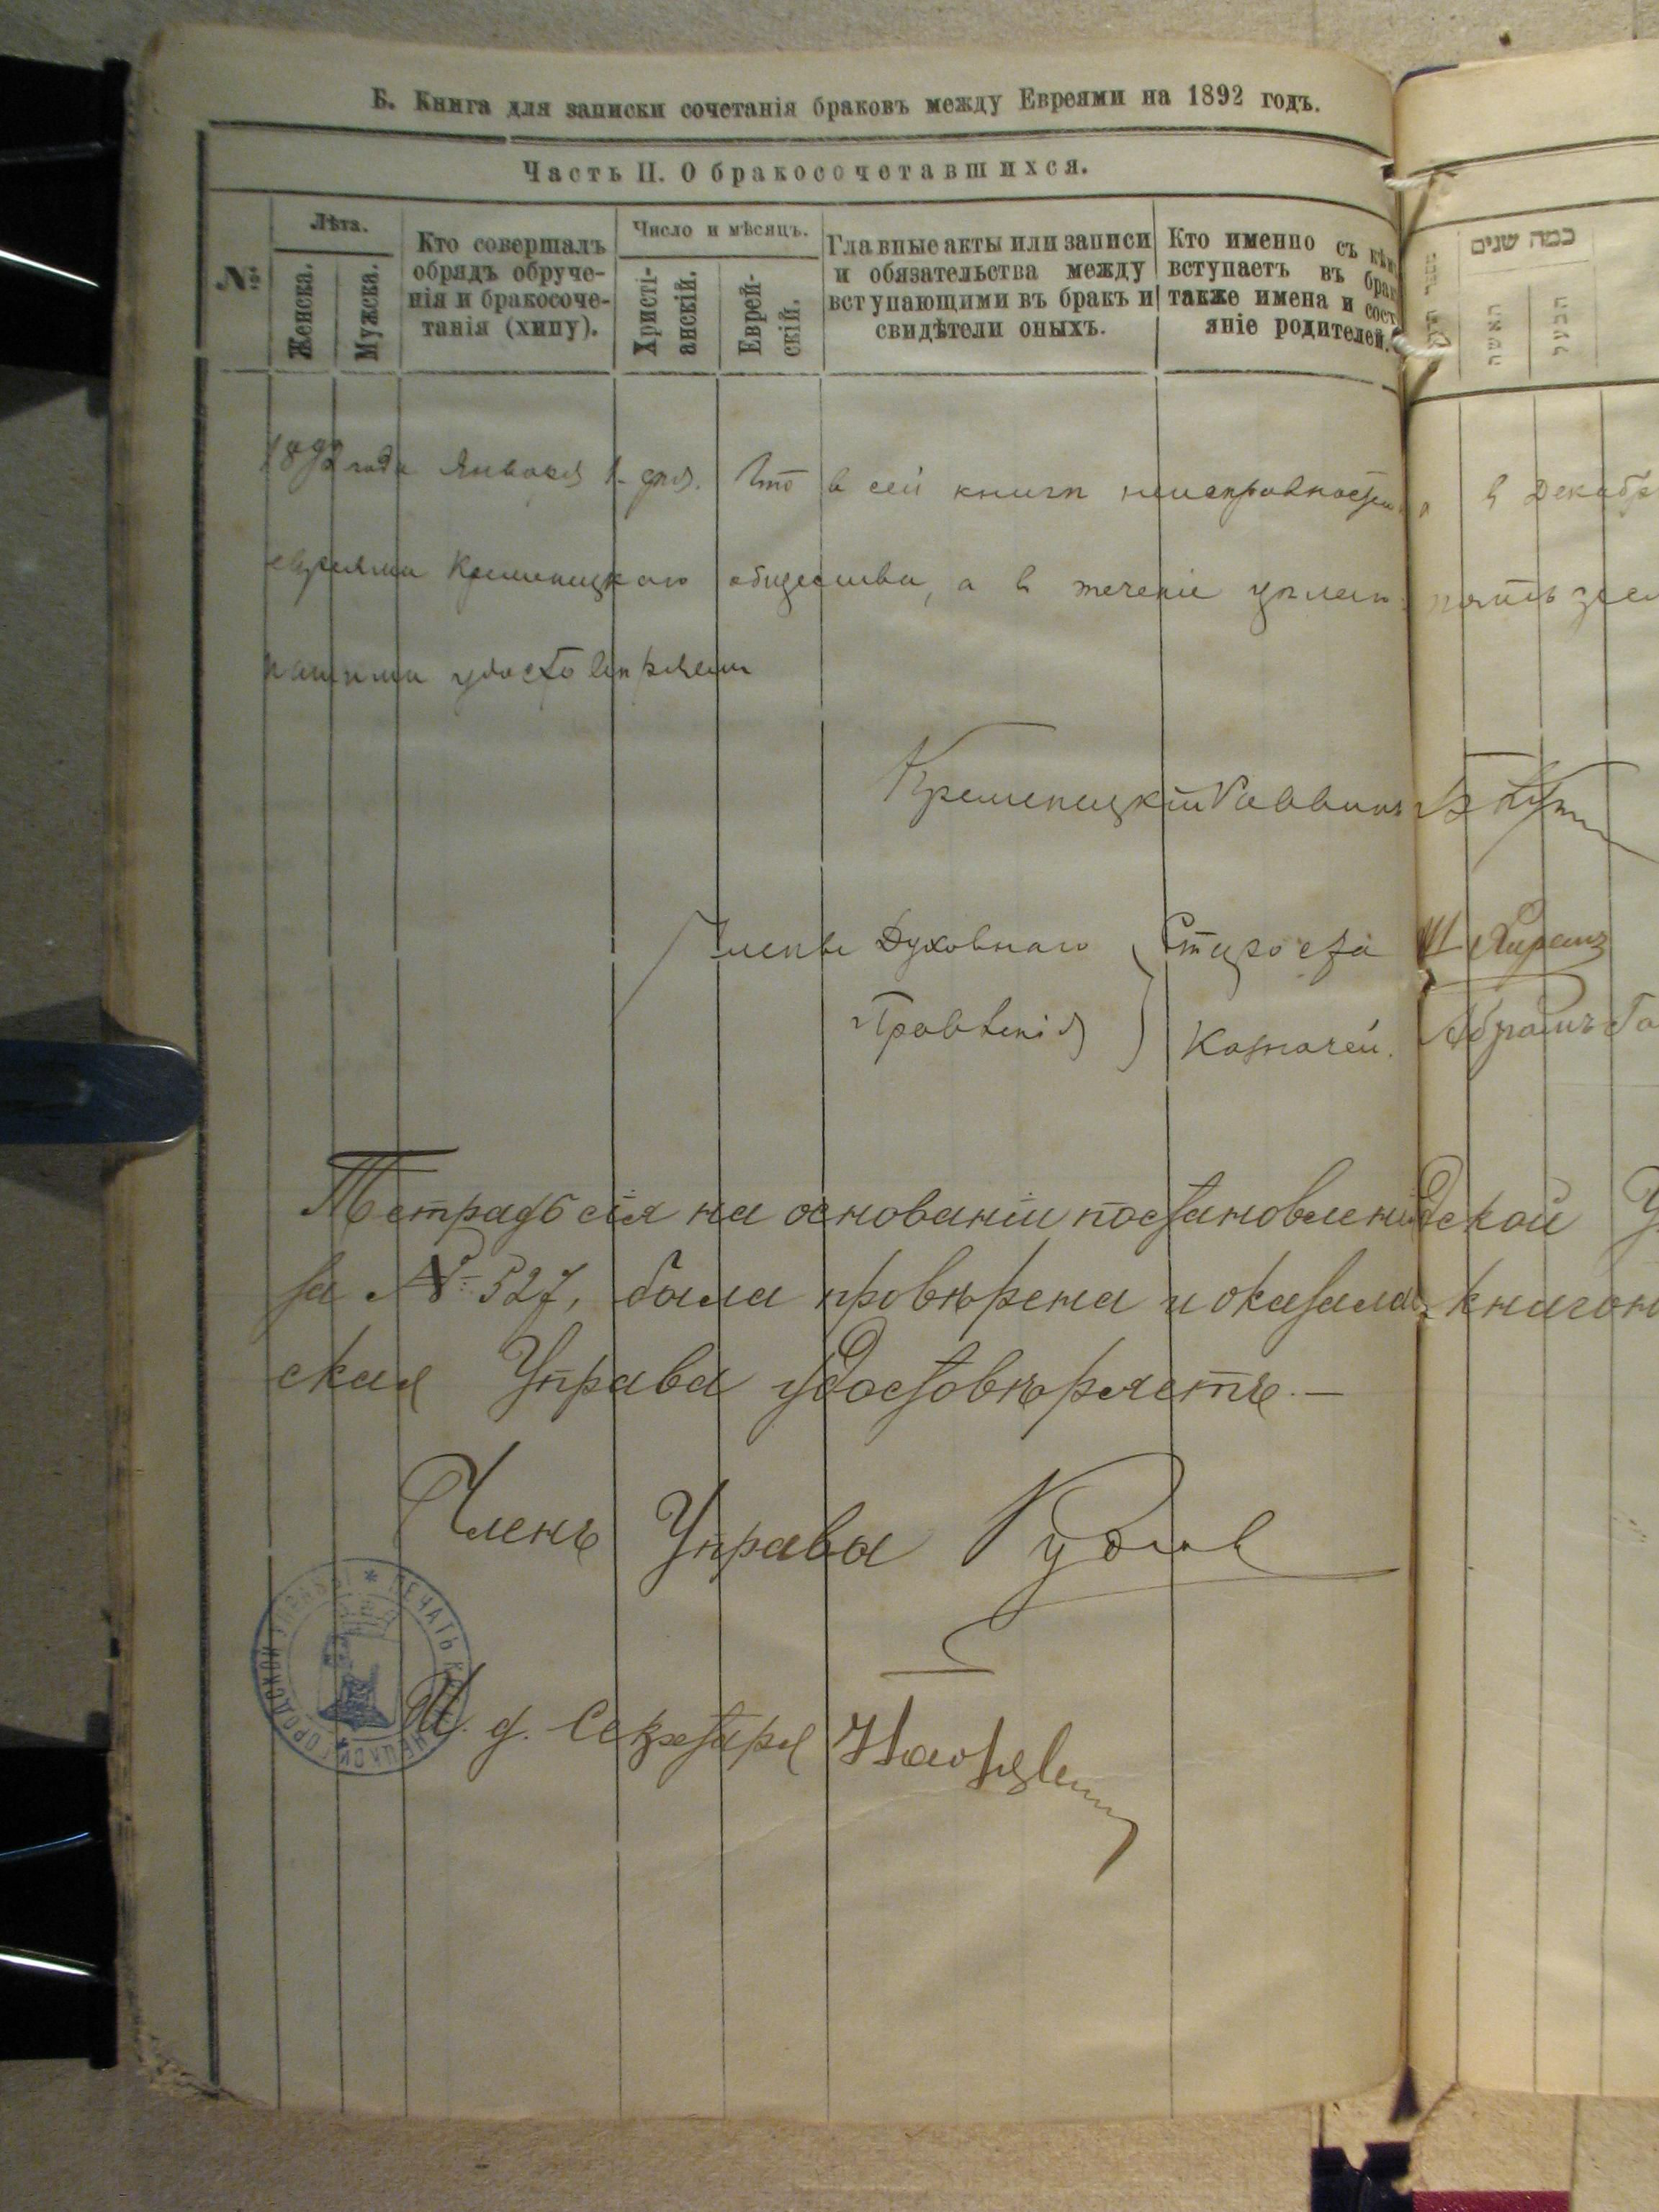 Б. Книга для записки сочетанія браковъ между Евреями на 1892 годъ.
Часть II. О бракосочетавшихся.
№
Лѣта.
Женска.
Мужска.
Кто совершалъ
обрядъ обруче-
нія и бракосоче-
танія (хипу).
Число и мѣсяцъ.
Христі-
анскій.
Еврей-
скій.
Главные акты или записи
и обязательства между
вступающими въ бракъ и
свидѣтели оныхъ.
Кто именно съ кѣмъ
вступаетъ въ брак
также имена и сост
яніе родителей.
כמה שנים
האשה
הבעל
1892 года Января 1 дня. Что в сей книги неисправностей в Декабр
евреями Кременецкаго общества, а в теченіе
нашими удостовѣряем
Кременецкій Раввинъ
Члены Духовнаго Староста
Правленія Казначей. Абрамъ
Тетрадь сія на основаніи постановленія дской
за № 527, была провѣрена и оказалась книгою
ская Управа удостовѣряетъ. —
Членъ Управы
И. д. Секретаря
ПЕЧАТЬ КРЕМЕНЕЦКОЙ ГОРОДСКОЙ УПРАВЫ